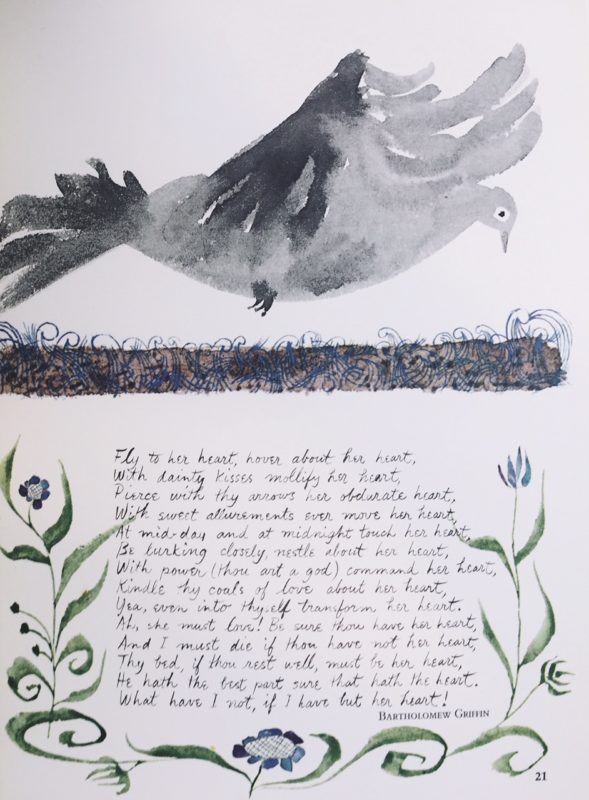 Fly to her heart, hover about her heart,
With dainty kisses mollify her heart,
Pierce with thy arrows her obdurate heart,
With sweet allurements ever move her heart,
At mid-day and at midnight touch her heart,
Be lurking closely, nestle about her heart,
With power (thou art a god) command her heart,
Kindle thy coals of love about her heart,
Yea, even into thyself transform her heart.
Ah, she must love! Be sure thou have her heart,
And I must die if thou have not her heart,
Thy bed, if thou rest well, must be her heart,
He hath the best part sure that hath the heart.
What have I not, if I have but her heart!
BARTHOLOMEW GRIFFIN
21